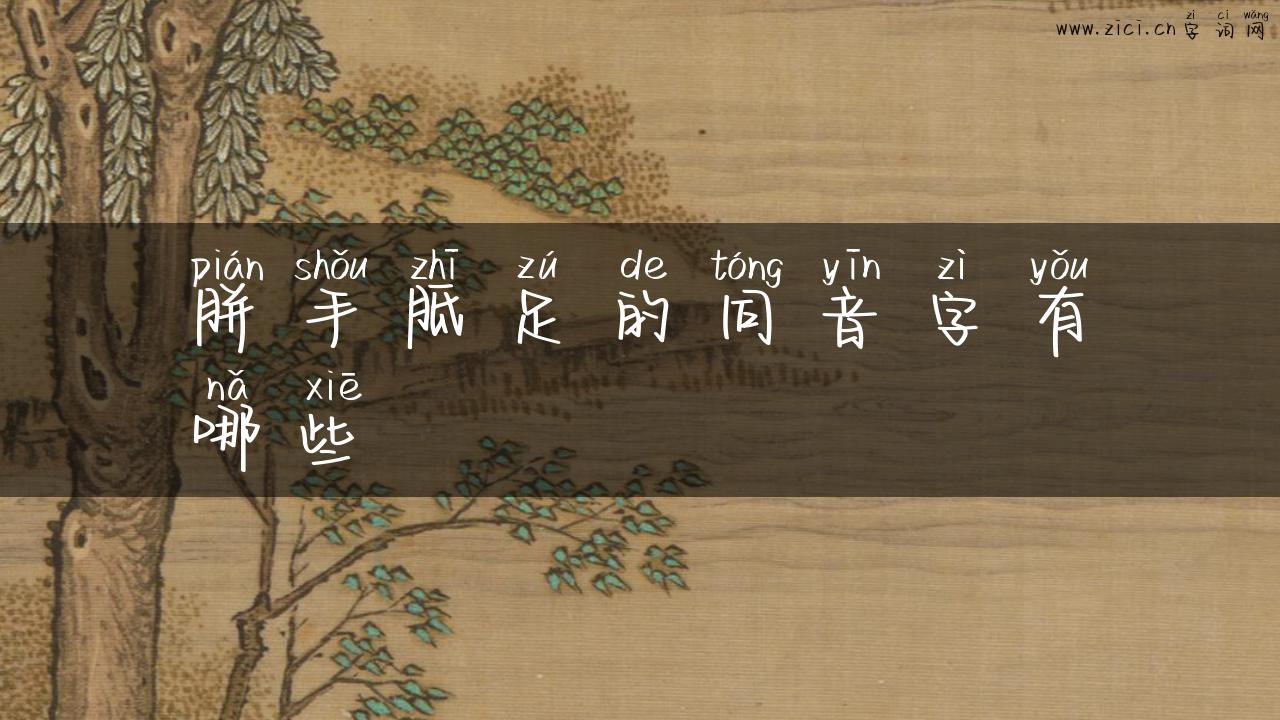 zì cí wǎng
www.zici.cn 字 词 网
pián shǒu zhī zú de tóng yīn zì yǒu
胼 手 胝 足 的 同 音 字 有
nǎ xiē
哪 些